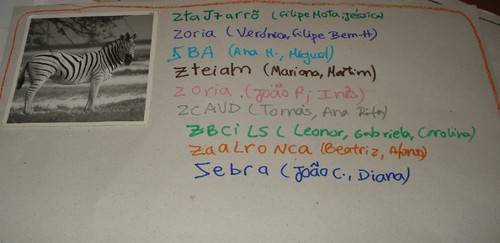 ZtaJzarrõ (Filipe Mota, Jéssica)
Zoria (Verónica, Filipe Bem-H)
SBA (Ana M., Miguel)
Zteiam (Mariana, Martim)
Zoria (João P., Inês)
ZCAVD (Tomás, Ana Rita)
ZBCiLS (Leonor, Gabriela, Carolina)
ZaaLroNca (Beatriz, Afonso)
Sebra (João C., Diana)